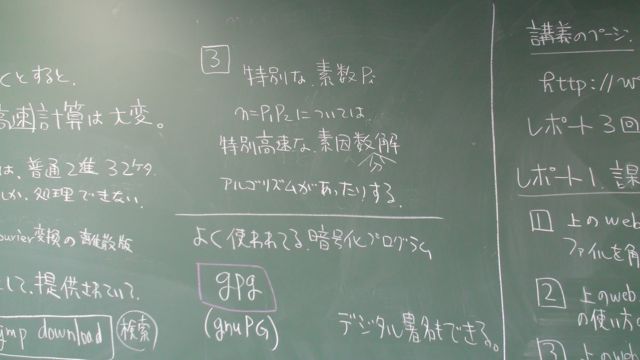 くとすると、
高速計算は大変。
は、普通2進 32ケタ
しか、処理できない.
ourier変換の離散版
して、提供されていて、
gmp download 検索
3 特別な、素数Pi
n=P1P2 については、
特別高速な、素因数分解
アルゴリズムがあったりする.
よく使われてる、暗号化プログラム
gpg
(gnuPG)
デジタル署名もできる。
講義のページ.
http://w
レポート3回
レポート1. 課
1 上のweb
ファイルを
2 上のweb
の使い方
3 上のweb